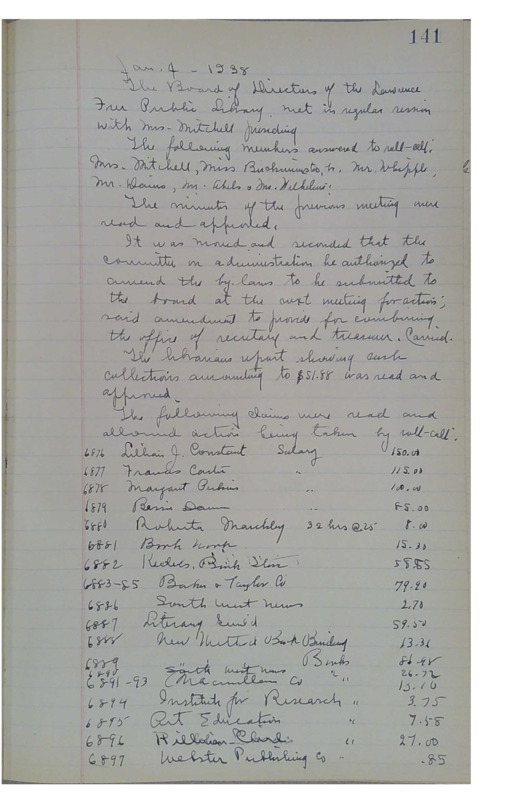 141
Jan. 4 - 1938
The Board of Directors of the Lawrence
Free Public Library met in regular session
with Mrs. Mitchell presiding
The following members answered to roll-call:
Mrs. Mitchell, Miss Mr. Whipple,
Mr.
The minutes of the previous meeting were
read and approved.
It was moved and seconded that the
committee on administration be authorized to
amend the by-laws to be submitted to
the board at the next meeting for action;
said amendment to provide for combining
the office of secretary and treasurer. Carried.
The librarians report showing cash
collections amounting to $51.88 was read and
approved.
The following claims were read and
allowed action being taken by roll-call.
6876 Lillian J. Constant Salary 150.00
6877 Frances " 115.00
6878 Margaret Perkins "
6879 " 85.00
6880 Roberta 32 hrs @ 25 8.00
6881 Book 15.30
6882 Book Store 58.85
6883-85 Baker & Taylor Co 79.20
6886 South west news 2.70
6887 Literary Guild 59.50
6888 New Method Book Binding 13.36
6889 Books 86.48
south west news " 26.72
6891-93 Macmillan Co " 13.10
6894 Institute for Research " 3.75
6895 Art Education " 7.58
6896 27.00
6897 Webster Publishing Co " .85